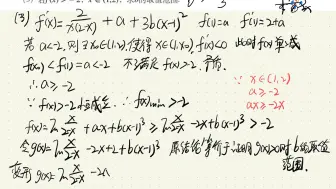 (3) f'(x)= 2/(x(2-x)) + a + 3b(x-1)² f(1)=a f'(1)=2+a
若a<-2,则∃ 使得x∈(1, ), f'(x)<0 此时f(x)单减
f(x)<f(1)=a<-2 不满足f(x)>-2,矛盾.
∴a≥-2
∵ x∈(1,2)
a≥-2
ax≥-2x
∵f(x)>-2恒成立 ∴f(x)min>-2
f(x)=ln x/(2-x) +ax+b(x-1)³ ≥ ln x/(2-x) -2x+b(x-1)³
令g(x)=ln x/(2-x) -2x+2+b(x-1)³ 原结论等价于 g(x)>0时b的取值
范围.
变形 g(x)=ln x/(2-x) -2x